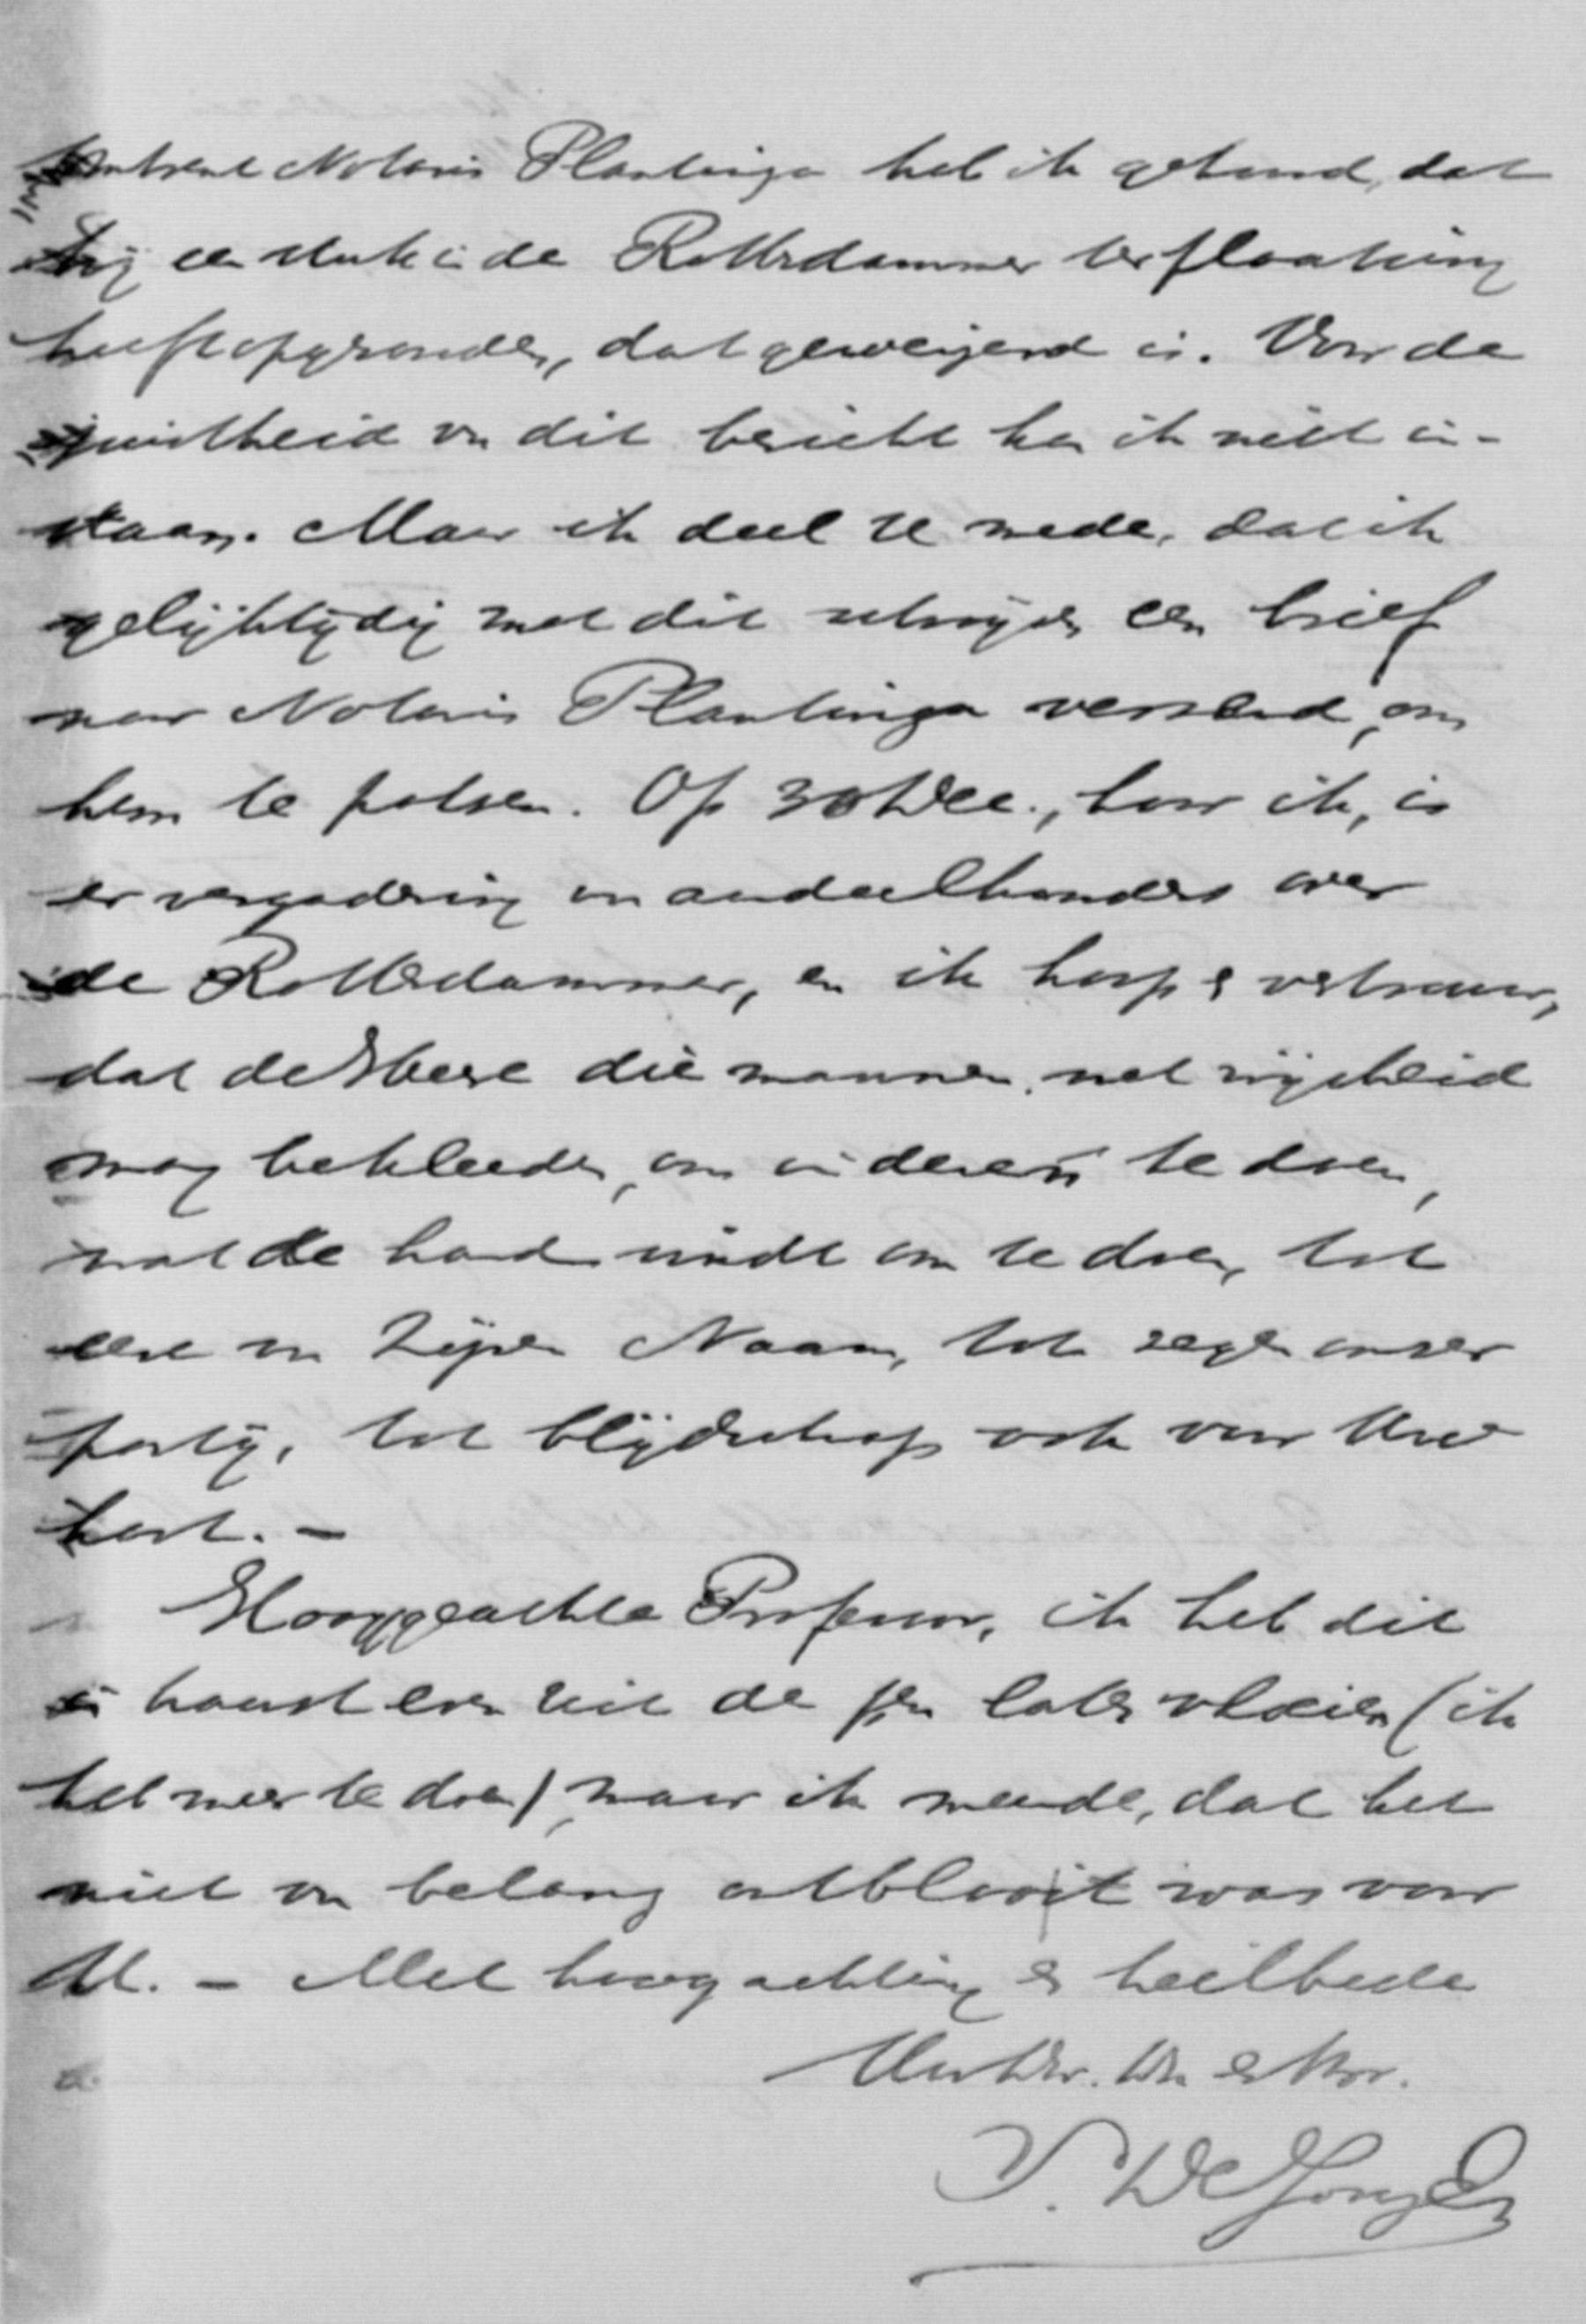 Omtrent Notaris Plantinga heb ik gehoord, dat
hij een stuk in de Rotterdammer ter plaatsing
heeft opgezonden, dat geweigerd is. Voor de
juistheid van dit bericht kan ik niet in-
staan. Maar ik deel U mede, dat ik
gelijktijdig met dit schrijven een brief
naar Notaris Plantinga verzend, om
hem te polsen. Op 30 Dec., hoor ik, is
er vergadering van aandeelhouders over
de Rotterdammer, en ik hoop & vertrouw,
dat de Heere die mannen met wijsheid
mag bekleeden, om in dezen te doen,
wat de hand vindt om te doen, tot
eere van Zijnen Naam, tot zegen onzer
partij, tot blijdschap ook voor Uw
hart. –
Hooggeachte Professor, ik heb dit
in haast even uit de pen laten vloeien (ik
heb meer te doen), maar ik meende, dat het
niet van belang ontbloot was voor
U. – Met hoogachting & heilbede
Uw Dw. Dn. & Br.
J. De Jonge